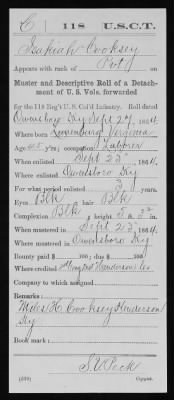 C | 118 | U.S.C.T.
Isakiah Cooksey
Appears with rank of Pvt
Muster and Descriptive Roll of a Detach-
ment of U. S. Vols. forwarded
for the 118 Reg't U.S. Col'd Infantry. Roll dated
Owensboro Ky Sept 27, 1864.
Where born Virginia
Age 45 y'rs; occupation Laborer
When enlisted Sept 23, 1864.
Where enlisted Owensboro Ky
For what period enlisted 3 years.
Eyes Blk; hair Blk
Complexion Blk; height 5 ft. in.
When mustered in Sept 23, 1864.
Where mustered in Owensboro Ky
Bounty paid $ 100; due $ 100
Where credited Henderson Co
Company to which assigned
Remarks:
Miles H. Cooksey Henderson
Ky
Book mark:
S.V. Peck
(339) Copyist.